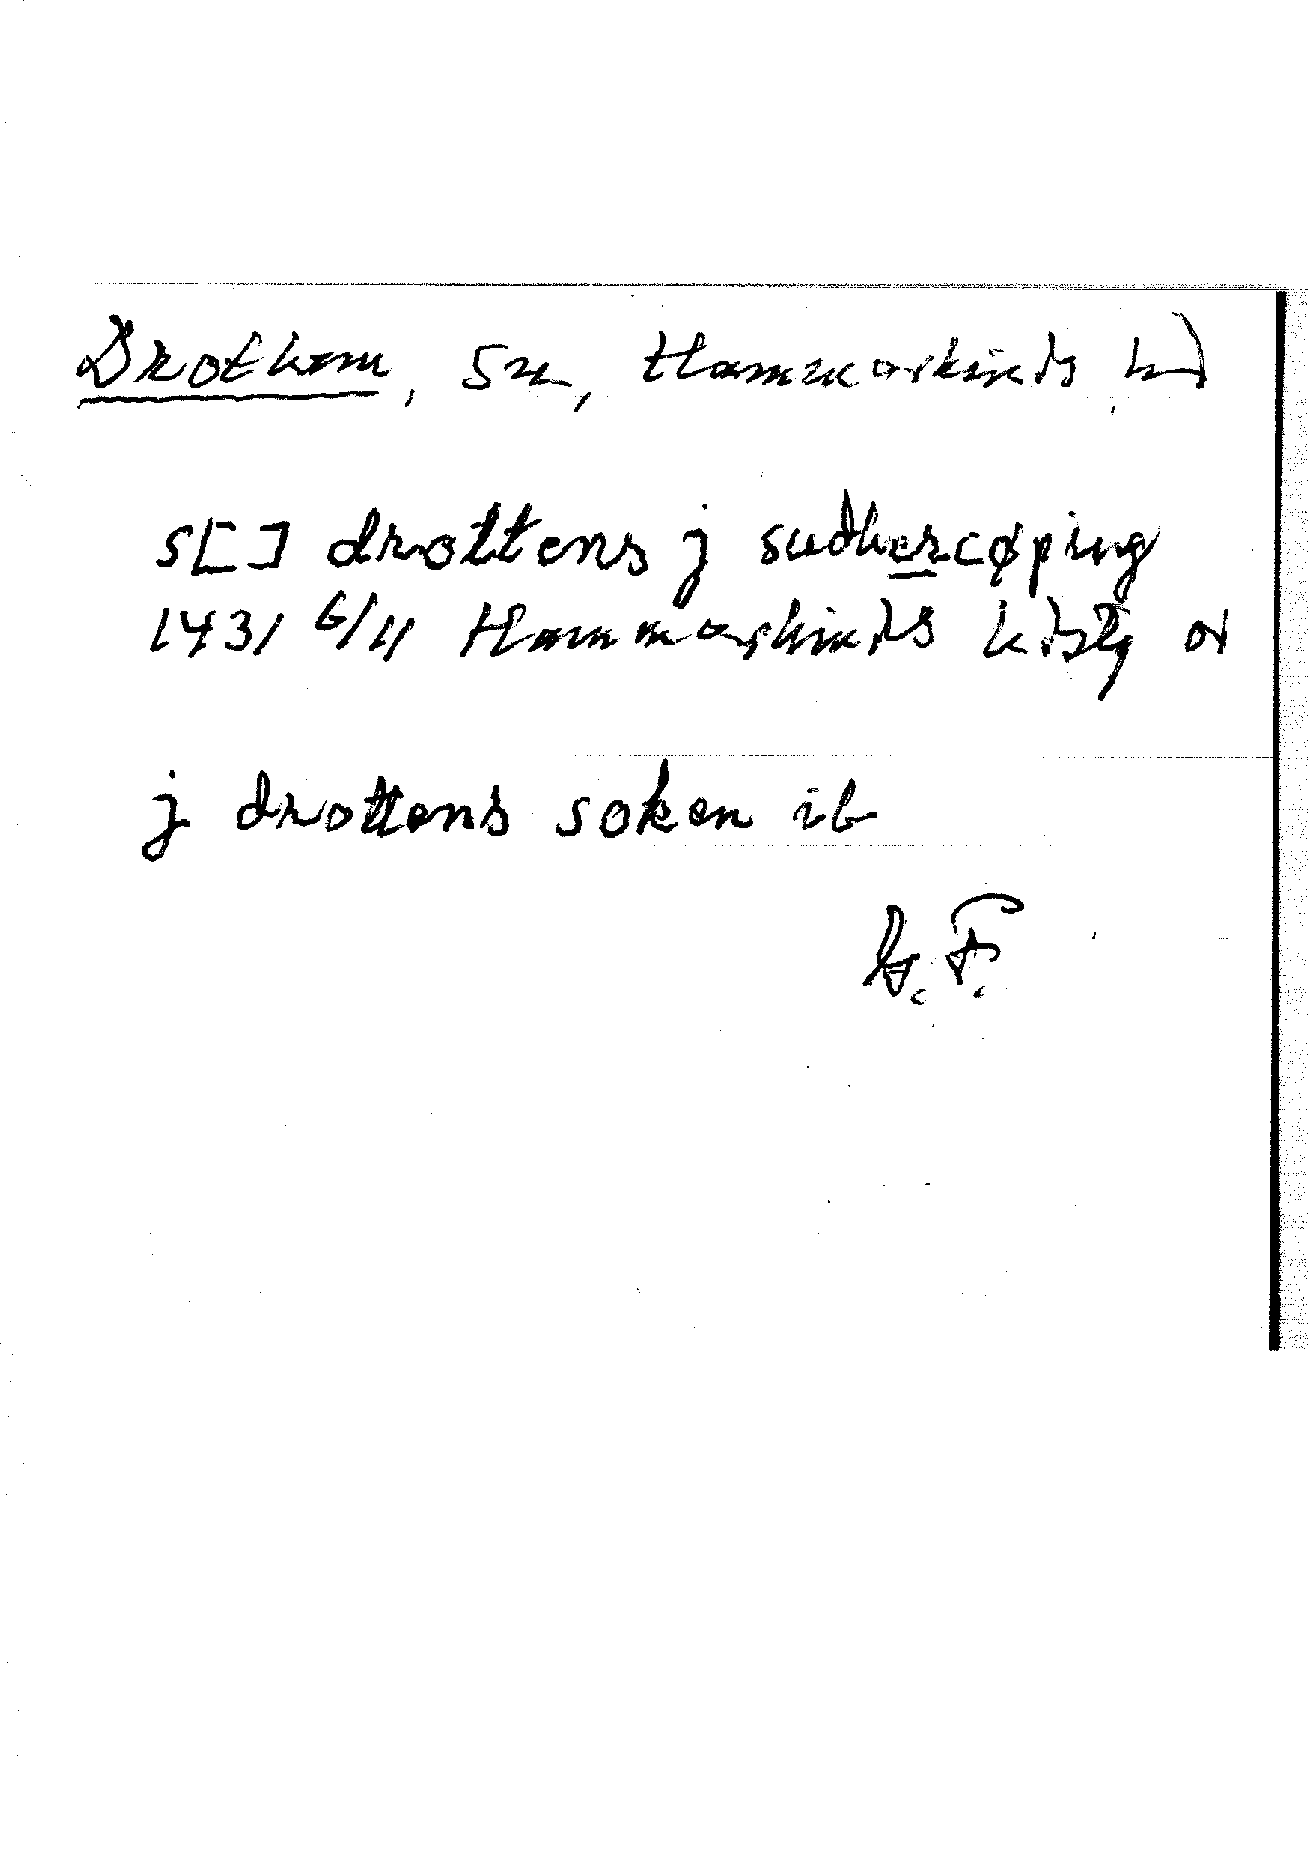 Drothem, sn, Hammarkinds hd
s[ ] drottens j sudhercøping
1431 6/11 Hammarkinds hdstg or
j drottens soken ib
G. F.